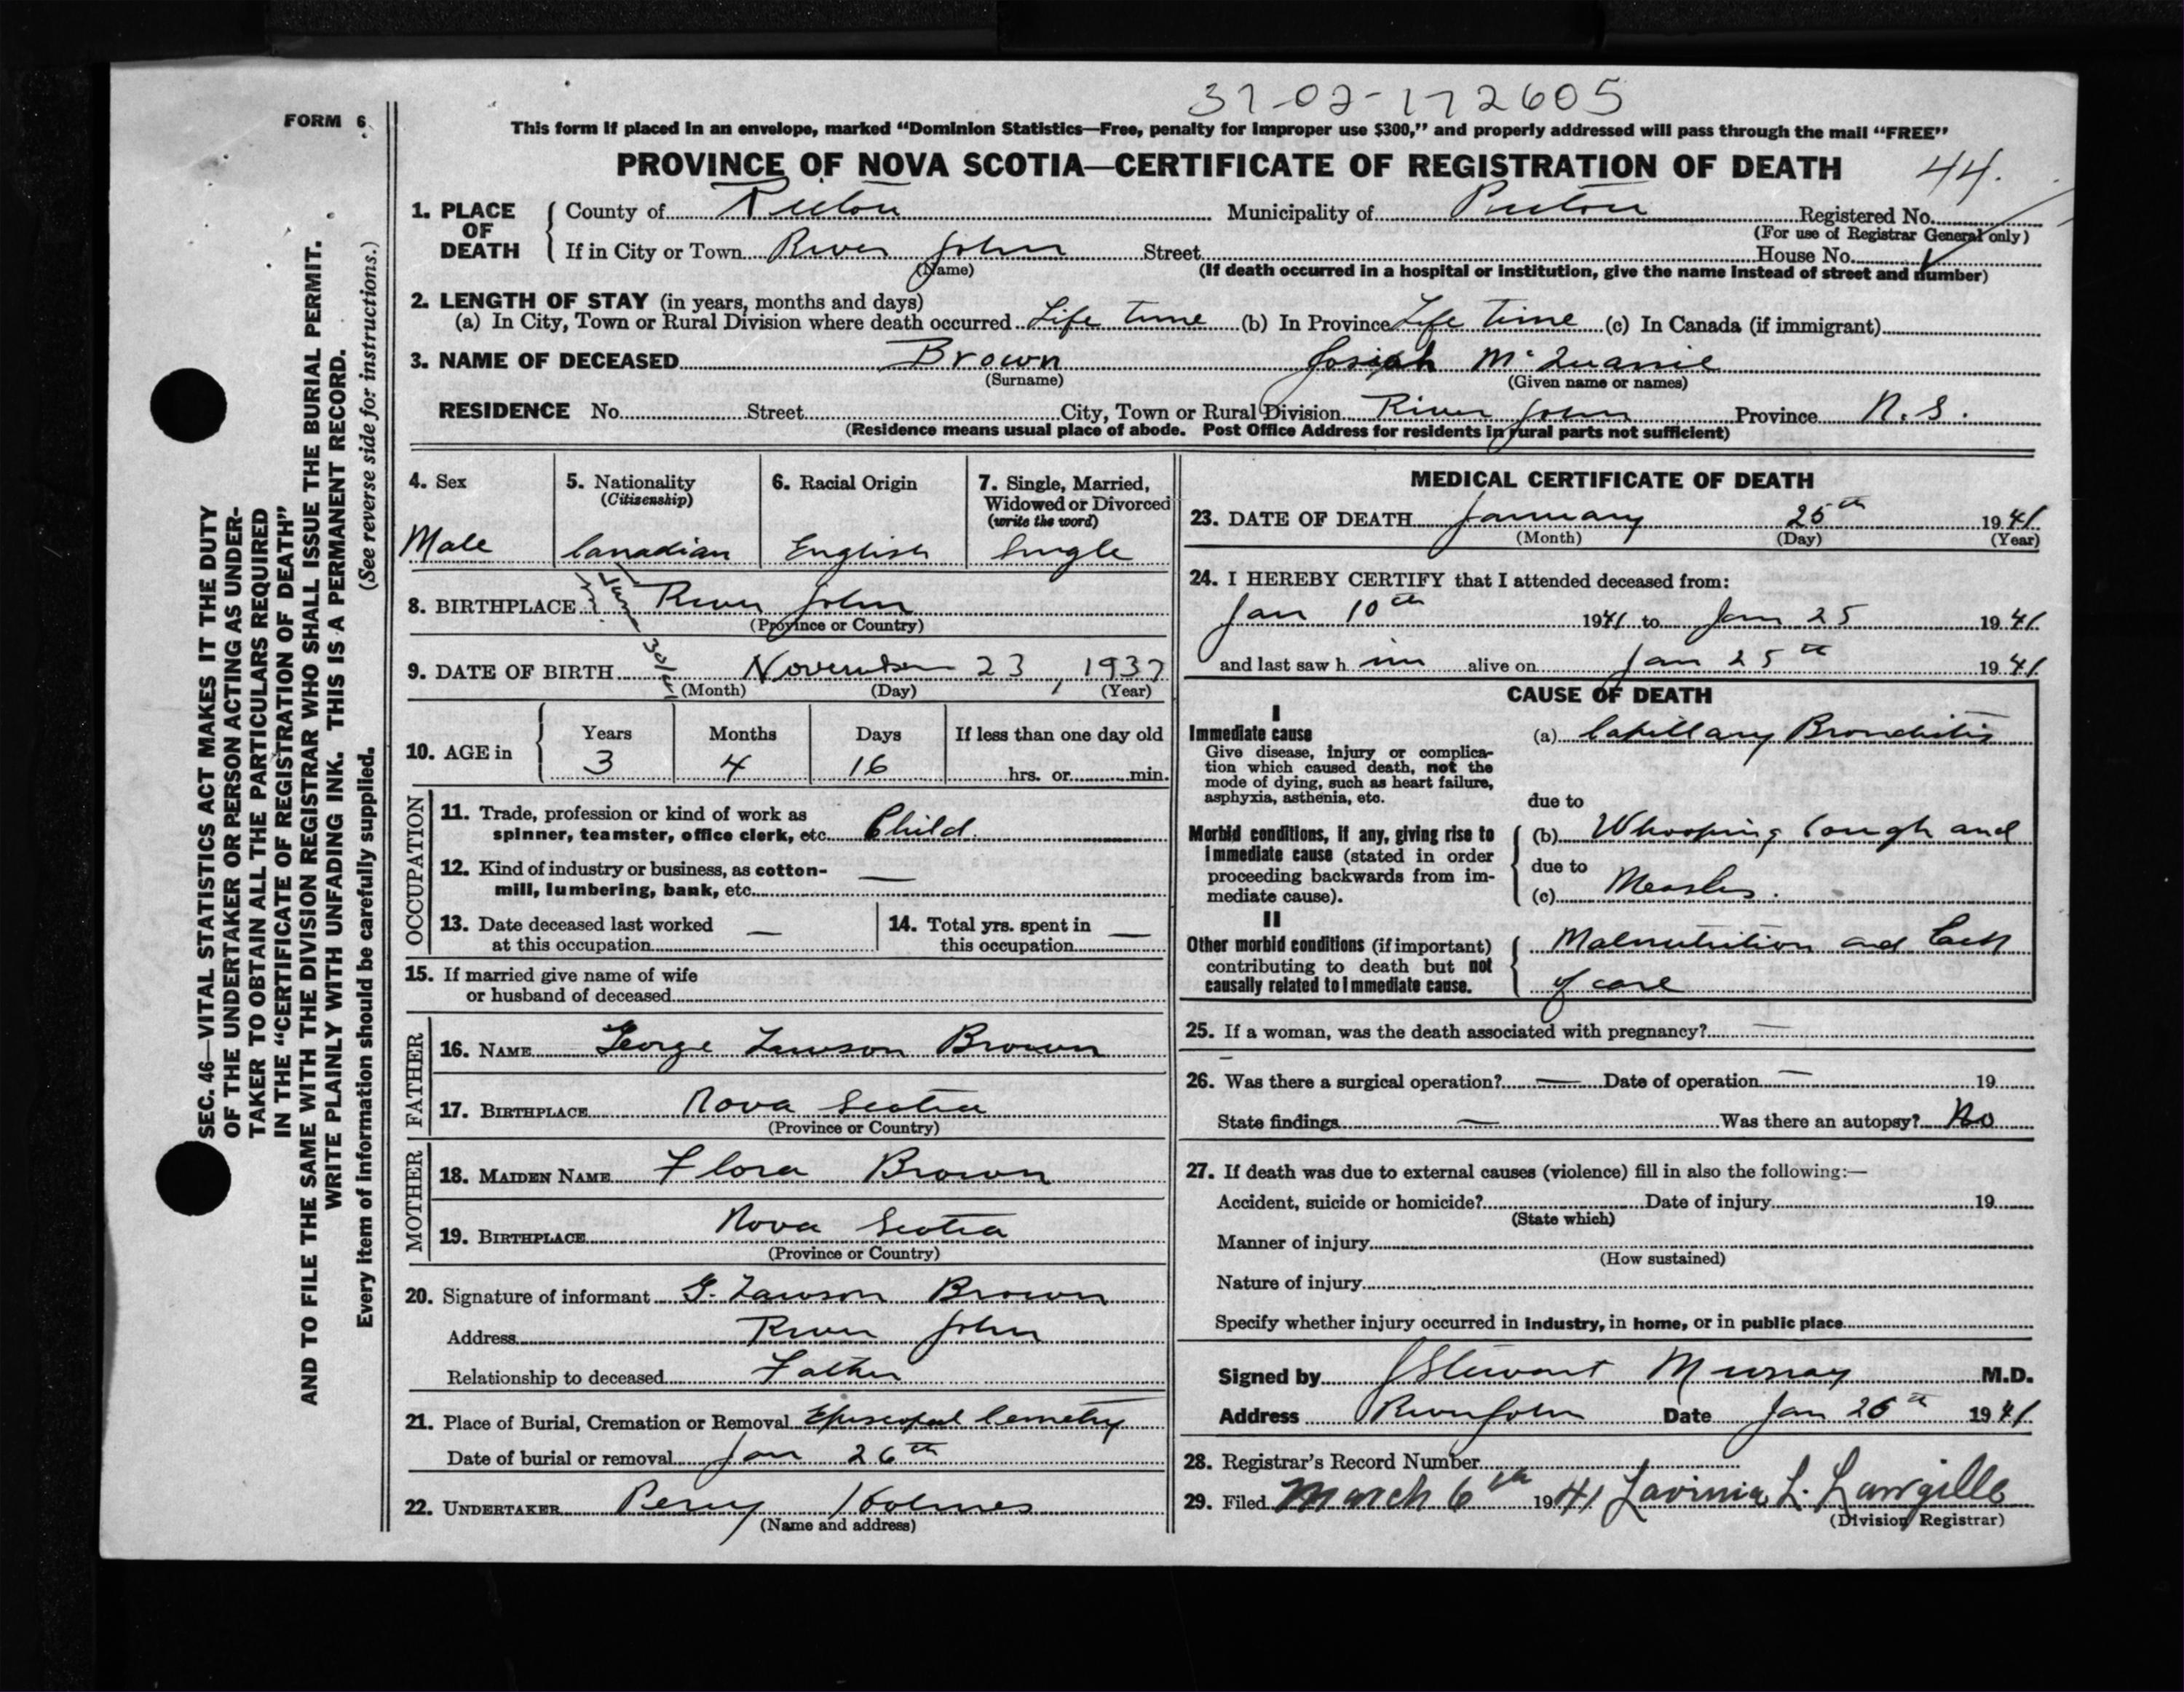 37-02-172605
FORM 6
This form if placed in an envelope, marked “Dominion Statistics—Free, penalty for improper use $300,” and properly addressed will pass through the mail “FREE”
PROVINCE OF NOVA SCOTIA—CERTIFICATE OF REGISTRATION OF DEATH 44.
1. PLACE OF DEATH County of Pictou Municipality of Pictou Registered No.
(For use of Registrar General only)
If in City or Town River John Street House No.
(Name) (If death occurred in a hospital or institution, give the name instead of street and number)
2. LENGTH OF STAY (in years, months and days)
(a) In City, Town or Rural Division where death occurred Life time (b) In Province Life time (c) In Canada (if immigrant)
3. NAME OF DECEASED Brown Josiah McQuarrie
(Surname) (Given name or names)
RESIDENCE No. Street City, Town or Rural Division River John Province N.S.
(Residence means usual place of abode. Post Office Address for residents in rural parts not sufficient)
4. Sex 5. Nationality (Citizenship) 6. Racial Origin 7. Single, Married, Widowed or Divorced (write the word)
Male Canadian English Single
8. BIRTHPLACE River John
(Province or Country)
9. DATE OF BIRTH November 23, 1937
(Month) (Day) (Year)
10. AGE in Years Months Days If less than one day old
3 4 16 hrs. or min.
OCCUPATION
11. Trade, profession or kind of work as
spinner, teamster, office clerk, etc. Child.
12. Kind of industry or business, as cotton-
mill, lumbering, bank, etc. —
13. Date deceased last worked
at this occupation —
14. Total yrs. spent in
this occupation —
15. If married give name of wife
or husband of deceased
FATHER
16. NAME George Lawson Brown
17. BIRTHPLACE Nova Scotia
(Province or Country)
MOTHER
18. MAIDEN NAME Flora Brown
19. BIRTHPLACE Nova Scotia
(Province or Country)
20. Signature of informant G. Lawson Brown
Address River John
Relationship to deceased Father
21. Place of Burial, Cremation or Removal Episcopal Cemetry
Date of burial or removal Jan 26th
22. UNDERTAKER Percy Holmes
(Name and address)
MEDICAL CERTIFICATE OF DEATH
23. DATE OF DEATH January 25th 1941
(Month) (Day) (Year)
24. I HEREBY CERTIFY that I attended deceased from:
Jan 10th 1941 to Jan 25 1941
and last saw h im alive on Jan 25th 1941
CAUSE OF DEATH
I
Immediate cause (a) Capillary Bronchitis
Give disease, injury or complica-
tion which caused death, not the
mode of dying, such as heart failure,
asphyxia, asthenia, etc.
due to
Morbid conditions, if any, giving rise to
immediate cause (stated in order
proceeding backwards from im-
mediate cause).
(b) Whooping Cough and
due to
(c) Measles.
II
Other morbid conditions (if important)
contributing to death but not
causally related to immediate cause.
Malnutrition and lack
of care
25. If a woman, was the death associated with pregnancy? —
26. Was there a surgical operation? — Date of operation — 19
State findings — Was there an autopsy? No
27. If death was due to external causes (violence) fill in also the following:—
Accident, suicide or homicide? Date of injury 19
(State which)
Manner of injury
(How sustained)
Nature of injury
Specify whether injury occurred in industry, in home, or in public place
Signed by J Stewart Murray M.D.
Address River John Date Jan 26th 1941
28. Registrar’s Record Number
29. Filed March 6th 1941 Lavinia L. Langille
(Division Registrar)
SEC. 46—VITAL STATISTICS ACT MAKES IT THE DUTY
OF THE UNDERTAKER OR PERSON ACTING AS UNDER-
TAKER TO OBTAIN ALL THE PARTICULARS REQUIRED
IN THE “CERTIFICATE OF REGISTRATION OF DEATH”
AND TO FILE THE SAME WITH THE DIVISION REGISTRAR WHO SHALL ISSUE THE BURIAL PERMIT.
WRITE PLAINLY WITH UNFADING INK. THIS IS A PERMANENT RECORD.
Every item of information should be carefully supplied. (See reverse side for instructions.)